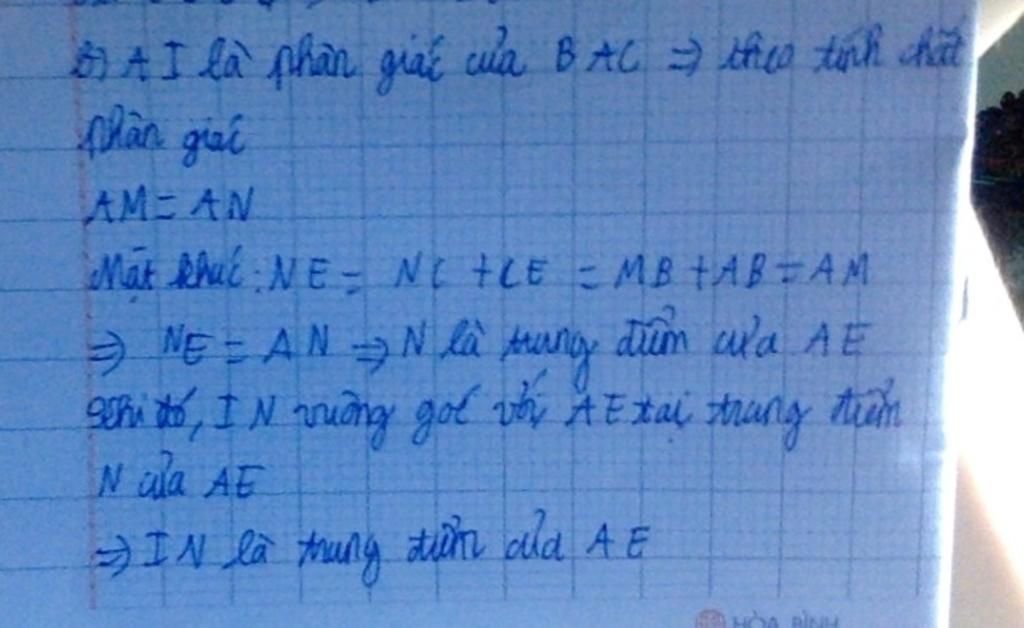 b) AI là phân giác của BAC => theo tính chất
phân giác
AM = AN
Mặt khác: NE = NC + CE = MB + AB = AM
=> NE = AN => N là trung điểm của AE
khi đó, IN vuông góc với AE tại trung điểm
N của AE
=> IN là trung điểm của AE
HÒA BÌNH